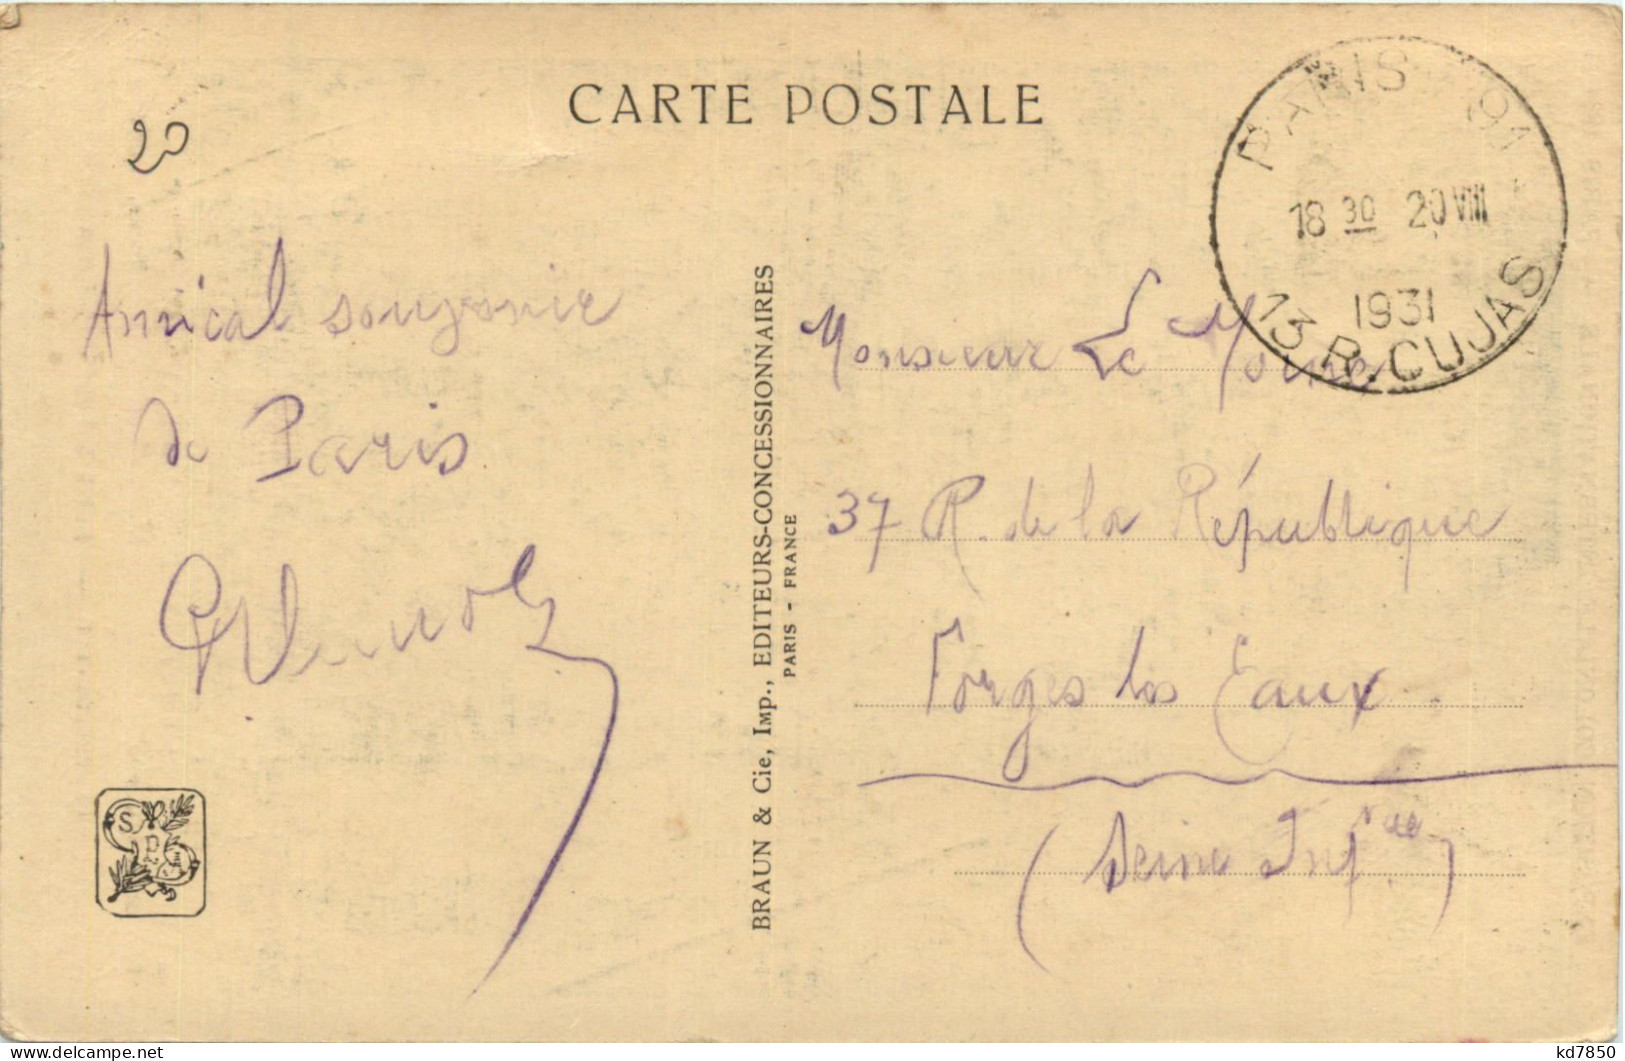 CARTE POSTALE
20
PARIS 91
18 30 20 VIII
1931
13 R. CUJAS
Amical souvenir
de Paris
BRAUN & Cie, Imp., EDITEURS-CONCESSIONNAIRES
PARIS - FRANCE
Monsieur Le Moine
37 R. de la République
Forges les Eaux
(Seine Infre)
kd7850